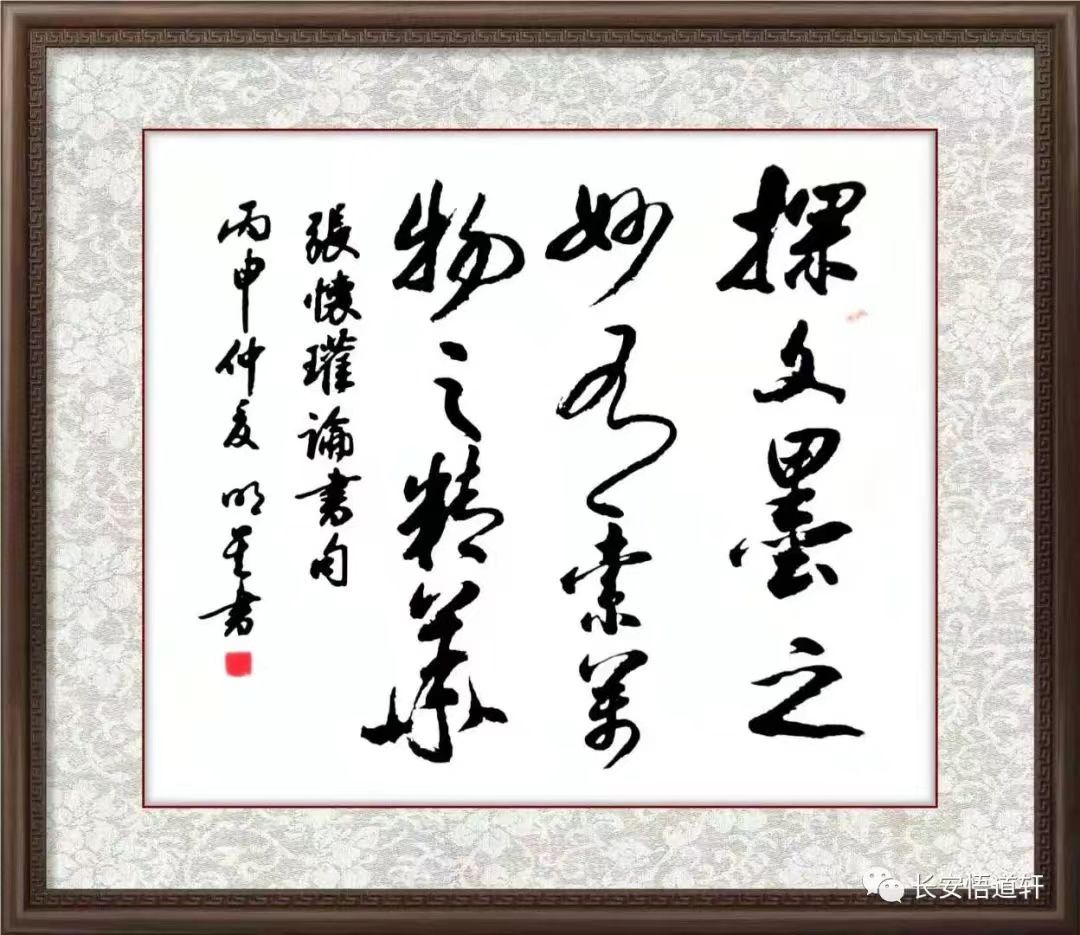 探文墨之
妙有索萬
物之精華
張懷瓘論書句
丙申仲夏 明書
长安悟道轩